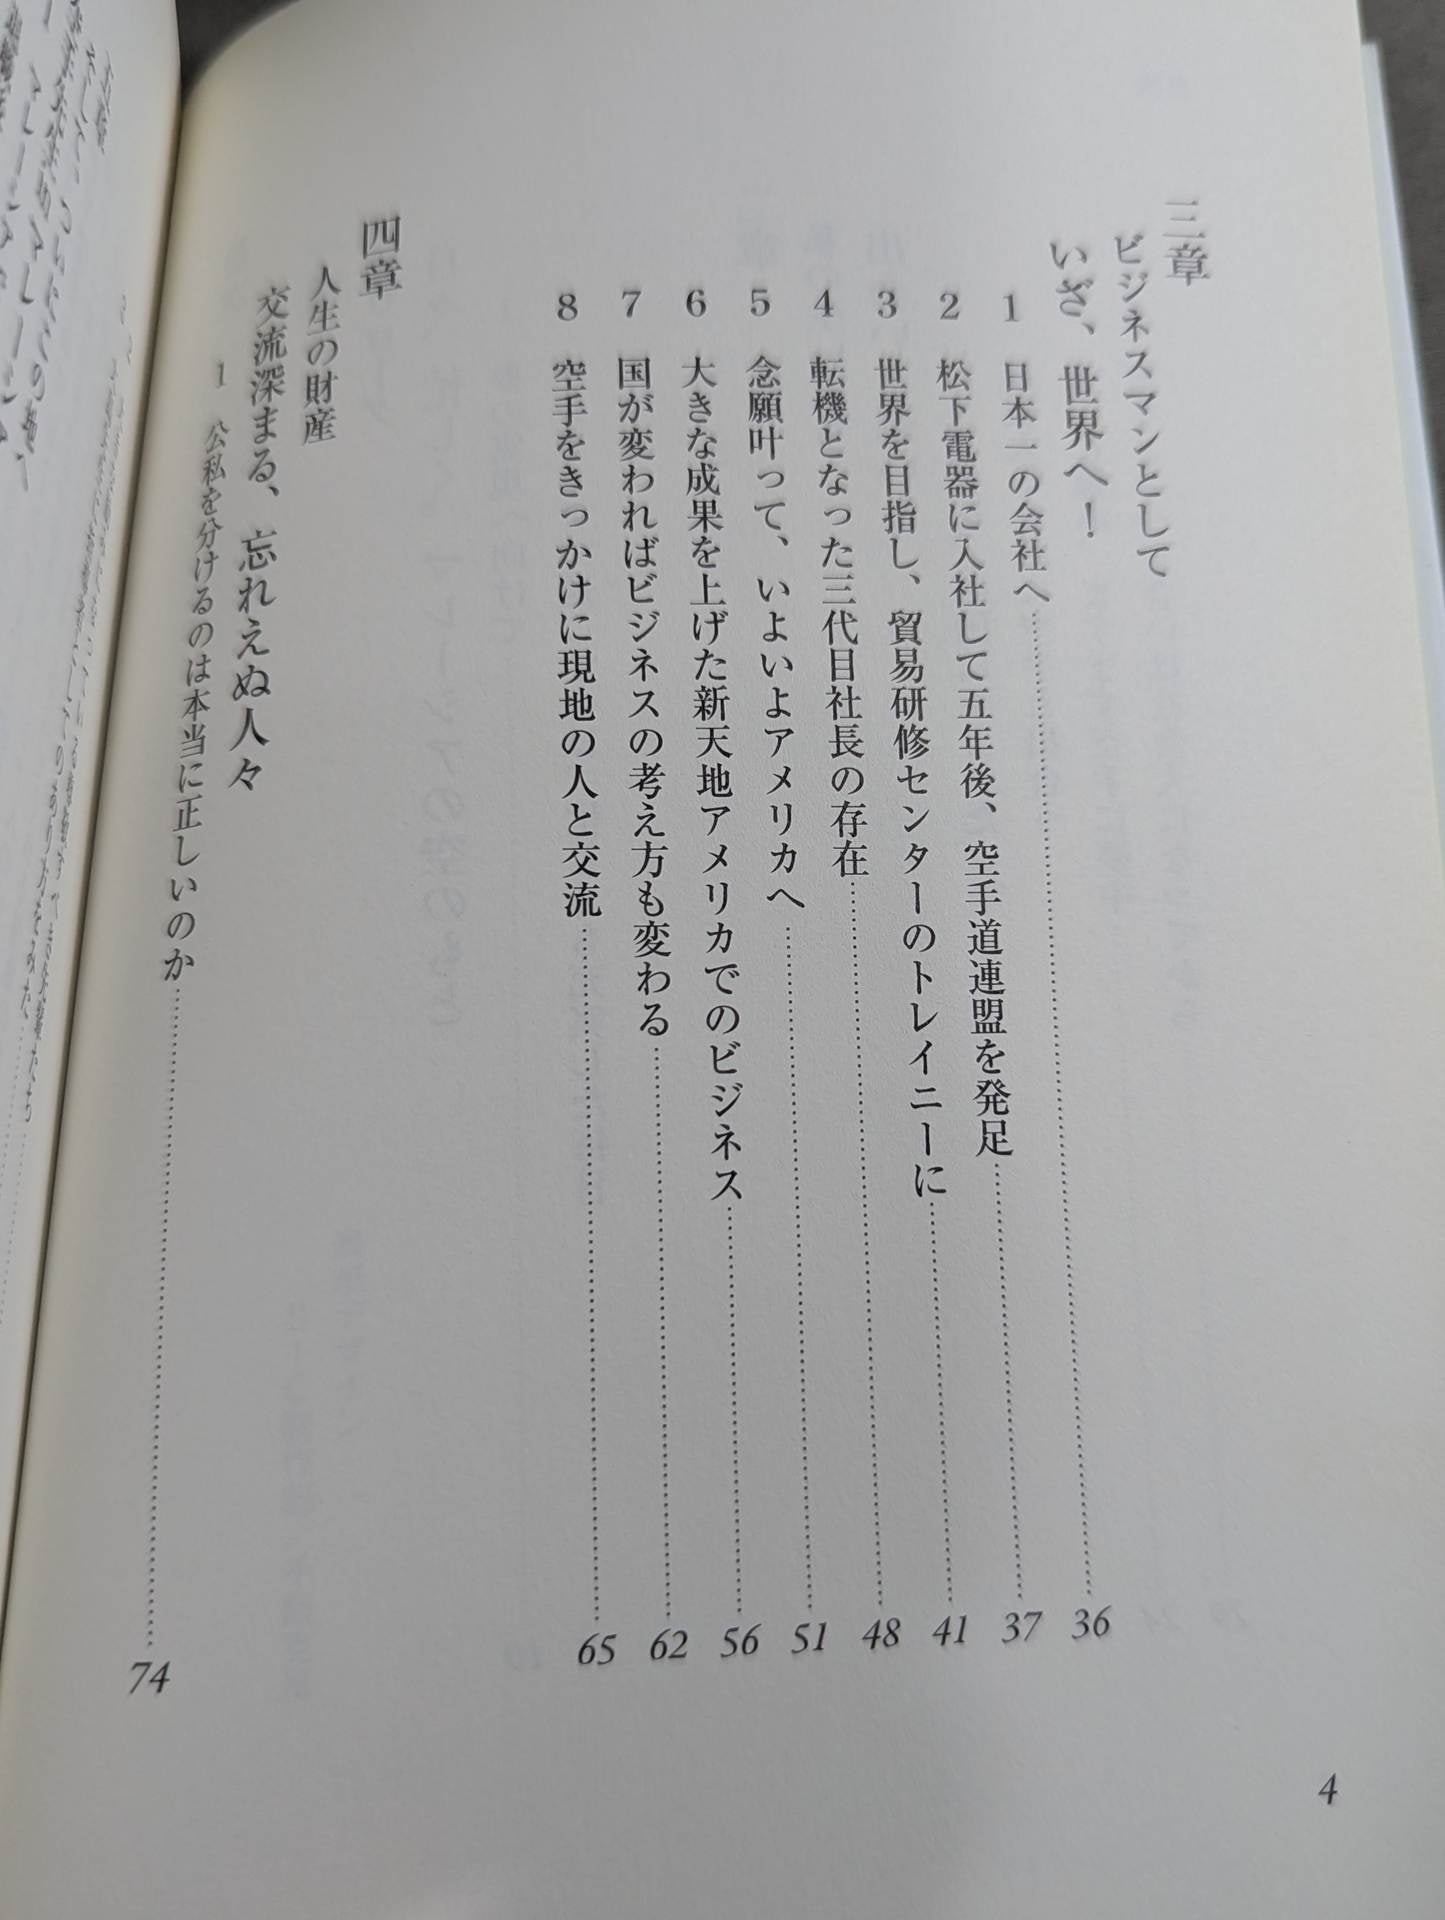 三章
ビジネスマンとして
いざ、世界へ！
1 日本一の会社へ 36
2 松下電器に入社して五年後、空手道連盟を発足 37
3 世界を目指し、貿易研修センターのトレイニーに 41
4 転機となった三代目社長の存在 48
5 念願叶って、いよいよアメリカへ 51
6 大きな成果を上げた新天地アメリカでのビジネス 56
7 国が変わればビジネスの考え方も変わる 62
8 空手をきっかけに現地の人と交流 65
四章
人生の財産
交流深まる、忘れえぬ人々
1 公私を分けるのは本当に正しいのか 74
4